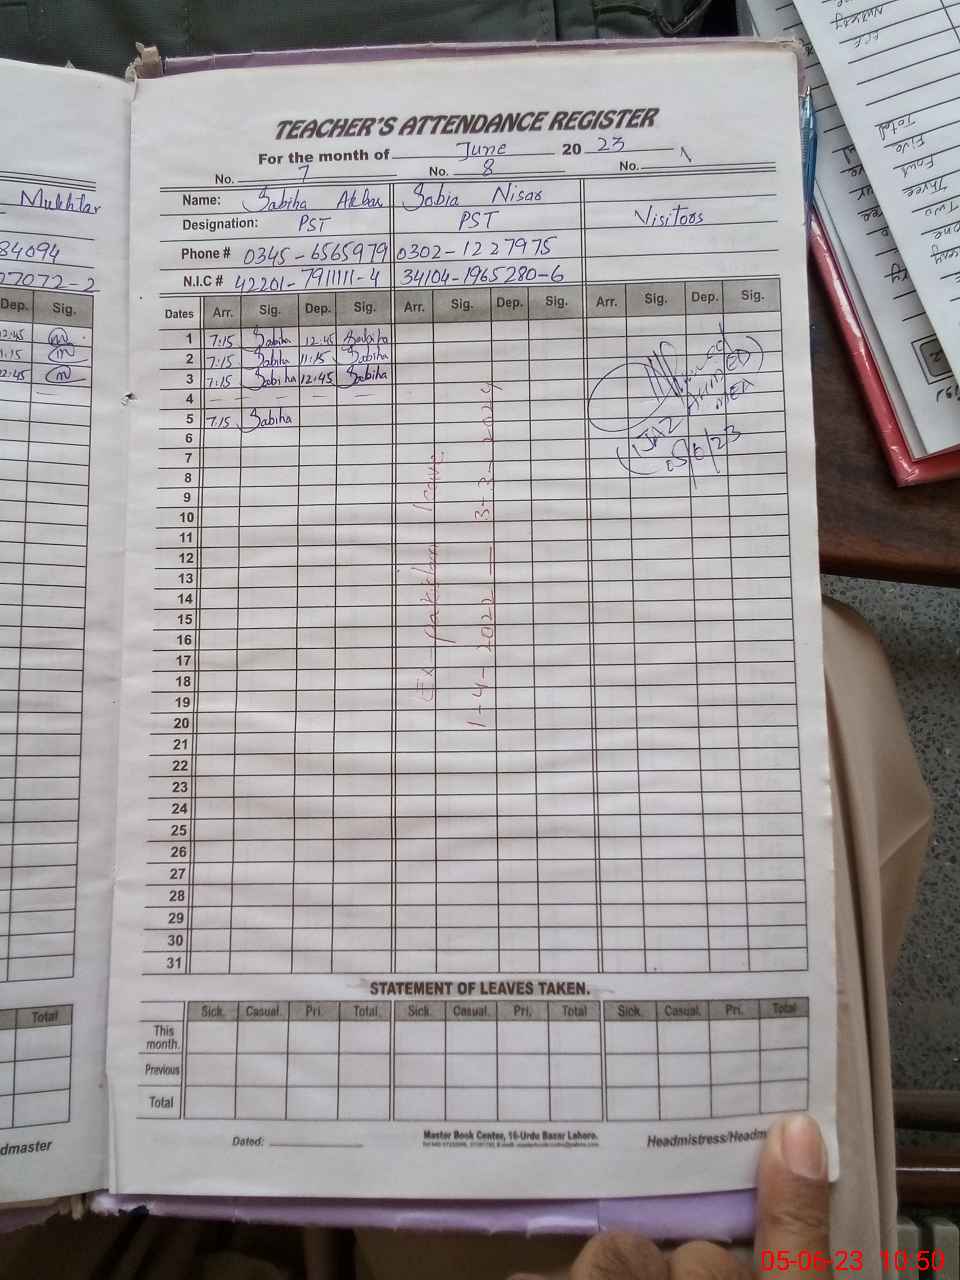 TEACHER'S ATTENDANCE REGISTER
For the month of June 20 23
No. 7 No. 8 No.
Name: Sabiha Akbar Sobia Nisar
Designation: PST PST Visitors
Phone # 0345-6565979 0302-1227975
N.I.C # 42201-7911111-4 34104-1965280-6
Dates Arr. Sig. Dep. Sig. Arr. Sig. Dep. Sig. Arr. Sig. Dep. Sig.
1 7:15 Sabiha 12:45 Sabiha
2 7:15 Sabiha 11:15 Sabiha
3 7:15 Sabiha 12:45 Sabiha
4
5 7.15 Sabiha
6
7
8
9
10
11
12
13
14
15
16
17
18
19
20
21
22
23
24
25
26
27
28
29
30
31
Ex-Pakistan leave
1-4-2022 — 3-3-2024
MEA
STATEMENT OF LEAVES TAKEN.
Sick. Casual. Pri. Total. Sick. Casual. Pri. Total Sick. Casual. Pri. Total
This month.
Previous
Total
Dated:
Master Book Center, 16-Urdu Bazar Lahore.
Headmistress/Headm
Mukhtar
84094
27072-2
Dep. Sig.
12:45
1:15
12:45
Total
dmaster
Total
Five
Four
Three
Two
05-06-23 10:50